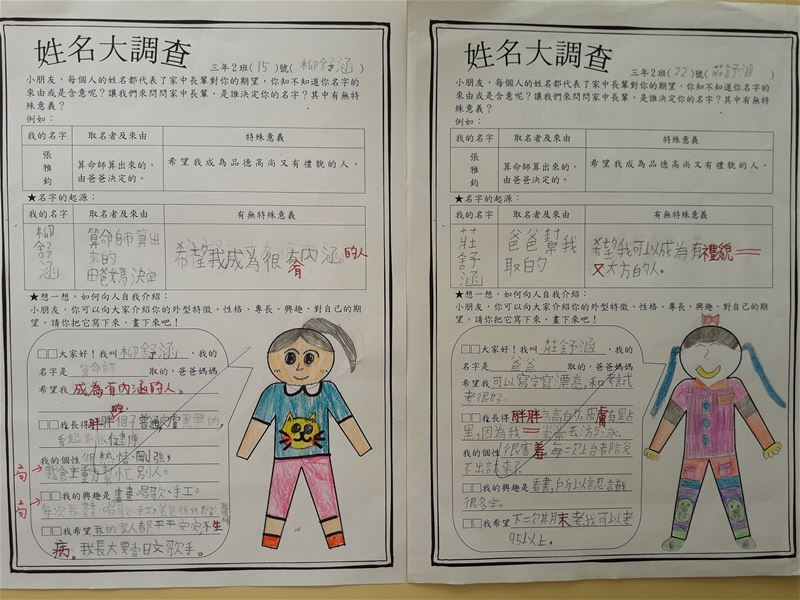 姓名大調查
三年2班(15)號(柳舒涵)
小朋友，每個人的姓名都代表了家中長輩對你的期望，你知不知道你名字的
來由或是含意呢？讓我們來問問家中長輩，是誰決定你的名字？其中有無特
殊意義？
例如：
我的名字 取名者及來由 特殊意義
張雅鈞 算命師算出來的， 希望我成為品德高尚又有禮貌的人。
由爸爸決定的。
★名字的起源：
我的名字 取名者及來由 有無特殊意義
柳舒涵 算命師算出
來的
由爸媽決定
希望我成為很有內涵的人
★想一想，如何向人自我介紹：
小朋友，你可以向大家介紹你的外型特徵、性格、專長、興趣、對自己的期
望，請你把它寫下來、畫下來吧！
□□大家好！我叫柳舒涵，我的
名字是算命師取的，爸爸媽媽
希望我成為有內涵的人。
□□我長得胖胖的
我的個性很熱情剛強，
我會主動幫忙別人。
□□我的興趣是畫畫、唱歌、手工。
每次我畫畫、唱歌、手工，
□□我希望我的家人都平平安安不生
病。我長大要當日文歌手。
姓名大調查
三年2班(22)號(莊舒涵)
小朋友，每個人的姓名都代表了家中長輩對你的期望，你知不知道你名字的
來由或是含意呢？讓我們來問問家中長輩，是誰決定你的名字？其中有無特
殊意義？
例如：
我的名字 取名者及來由 特殊意義
張雅鈞 算命師算出來的， 希望我成為品德高尚又有禮貌的人。
由爸爸決定的。
★名字的起源：
我的名字 取名者及來由 有無特殊意義
莊舒涵 爸爸幫我
取的
希望我可以成為有禮貌
又大方的人。
★想一想，如何向人自我介紹：
小朋友，你可以向大家介紹你的外型特徵、性格、專長、興趣、對自己的期
望，請你把它寫下來、畫下來吧！
□□大家好！我叫莊舒涵，我的
名字是爸爸取的，爸爸媽媽
希望我可以寫字寫漂亮，和考試
考很好。
□□我長得胖胖 皮膚有點
黑，因為我 去游泳。
我的個性很害羞，每一次上台都
下出
□□我的興趣是看書，所以
很多字。
□□我希望下一次期末考我可以考
95以上。